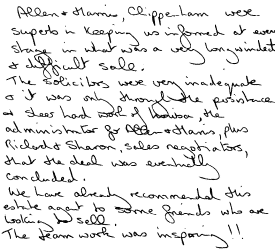 Allen & Harris, Chippenham were
superb in keeping us informed at every
stage in what was a very longwinded
& difficult sale.
The solicitors were very inadequate
& it was only through the persistence
& sheer hard work of the
administrator for Allen & Harris, plus
Richard & Sharon, sales negotiators,
that the deal was eventually
concluded.
We have already recommended this
estate agent to some friends who are
looking to sell.
The team work was inspiring!!